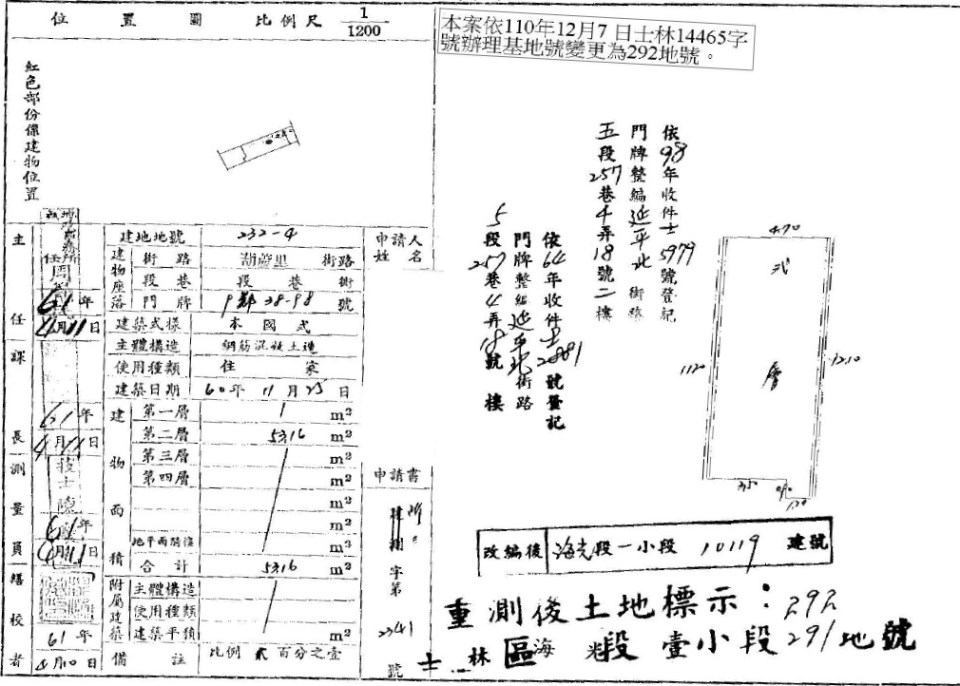 位置圖 比例尺 1/1200
本案依110年12月7日士林14465字
號辦理基地號變更為292地號。
紅色部份係建物位置
依98年收件士5979號登記
門牌整編延平北街路
五段257巷4弄18號二樓
依64年收件士28881號登記
門牌整編延平北街路
5段257巷4弄18號 樓
4.70
弐層
11.20
12.10
3.50
0.90
1.20
主任
61年
4月11日
課長
61年
4月11日
技士
測量員
61年
4月11日
繕校者
61年
4月10日
建地地號 232-4
建物座落
街路 街路
段巷 段巷衖
門牌 38-98號
建築式樣 本國式
主體構造 鋼筋混凝土造
使用種類 住家
建築日期 60年11月25日
建物面積
第一層 m²
第二層 53.16 m²
第三層 m²
第四層 m²
m²
m²
地平面騎樓 m²
合計 53.16 m²
附屬建築
主體構造
使用種類
建築平積 m²
備註 比例弐百分之壹
申請人姓名
申請書
字第2341號
改編後 海光段一小段 10119 建號
重測後土地標示：292
士林區海光段壹小段291地號